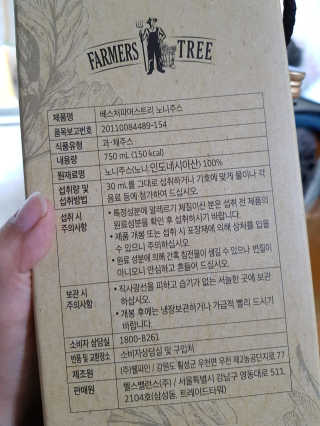 FARMERS TREE
제품명 베스처파머스트리 노니주스
품목보고번호 20110084489-154
식품유형 과·채주스
내용량 750 mL (150 kcal)
원재료명 노니주스(노니:인도네시아산) 100%
섭취량 및 섭취방법 30 mL를 그대로 섭취하거나 기호에 맞게 물이나 각
음료 등에 첨가하여 드십시오.
섭취 시 주의사항 • 특정성분에 알레르기 체질이신 분은 섭취 전 제품의
원료성분을 확인 후 섭취하시기 바랍니다.
• 제품 개봉 또는 섭취 시 포장재에 의해 상처를 입을
수 있으니 주의하십시오.
• 원료 성분에 의해 간혹 침전물이 생길 수 있으나 변질이
아니오니 안심하고 흔들어 드십시오.
보관 시 주의사항 • 직사광선을 피하고 습기가 없는 서늘한 곳에 보관
하십시오.
• 개봉 후에는 냉장보관하거나 가급적 빨리 드시기
바랍니다.
소비자 상담실 1800-8261
반품 및 교환장소 소비자상담실 및 구입처
제조원 (주)웰파인 / 강원도 횡성군 우천면 우천 제2농공단지로 77
판매원 헬스밸런스(주) / 서울특별시 강남구 영동대로 511,
2104호(삼성동, 트레이드타워)